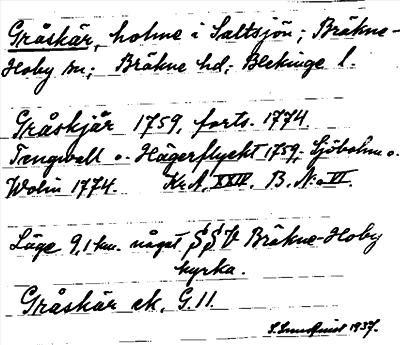 Gråskär, holme i Saltsjön; Bräkne-
Hoby sn; Bräkne hd; Blekinge l.
Gråskjär 1759, forts. 1774
Tengwall o. Hägerflyckt 1759, Sjöholm o.
Wolin 1774. Kr.A, XXIV. B. N:o VI.
Läge 9,1 km. något SSV Bräkne-Hoby
kyrka.
Gråskär ek. G.11.
1937.